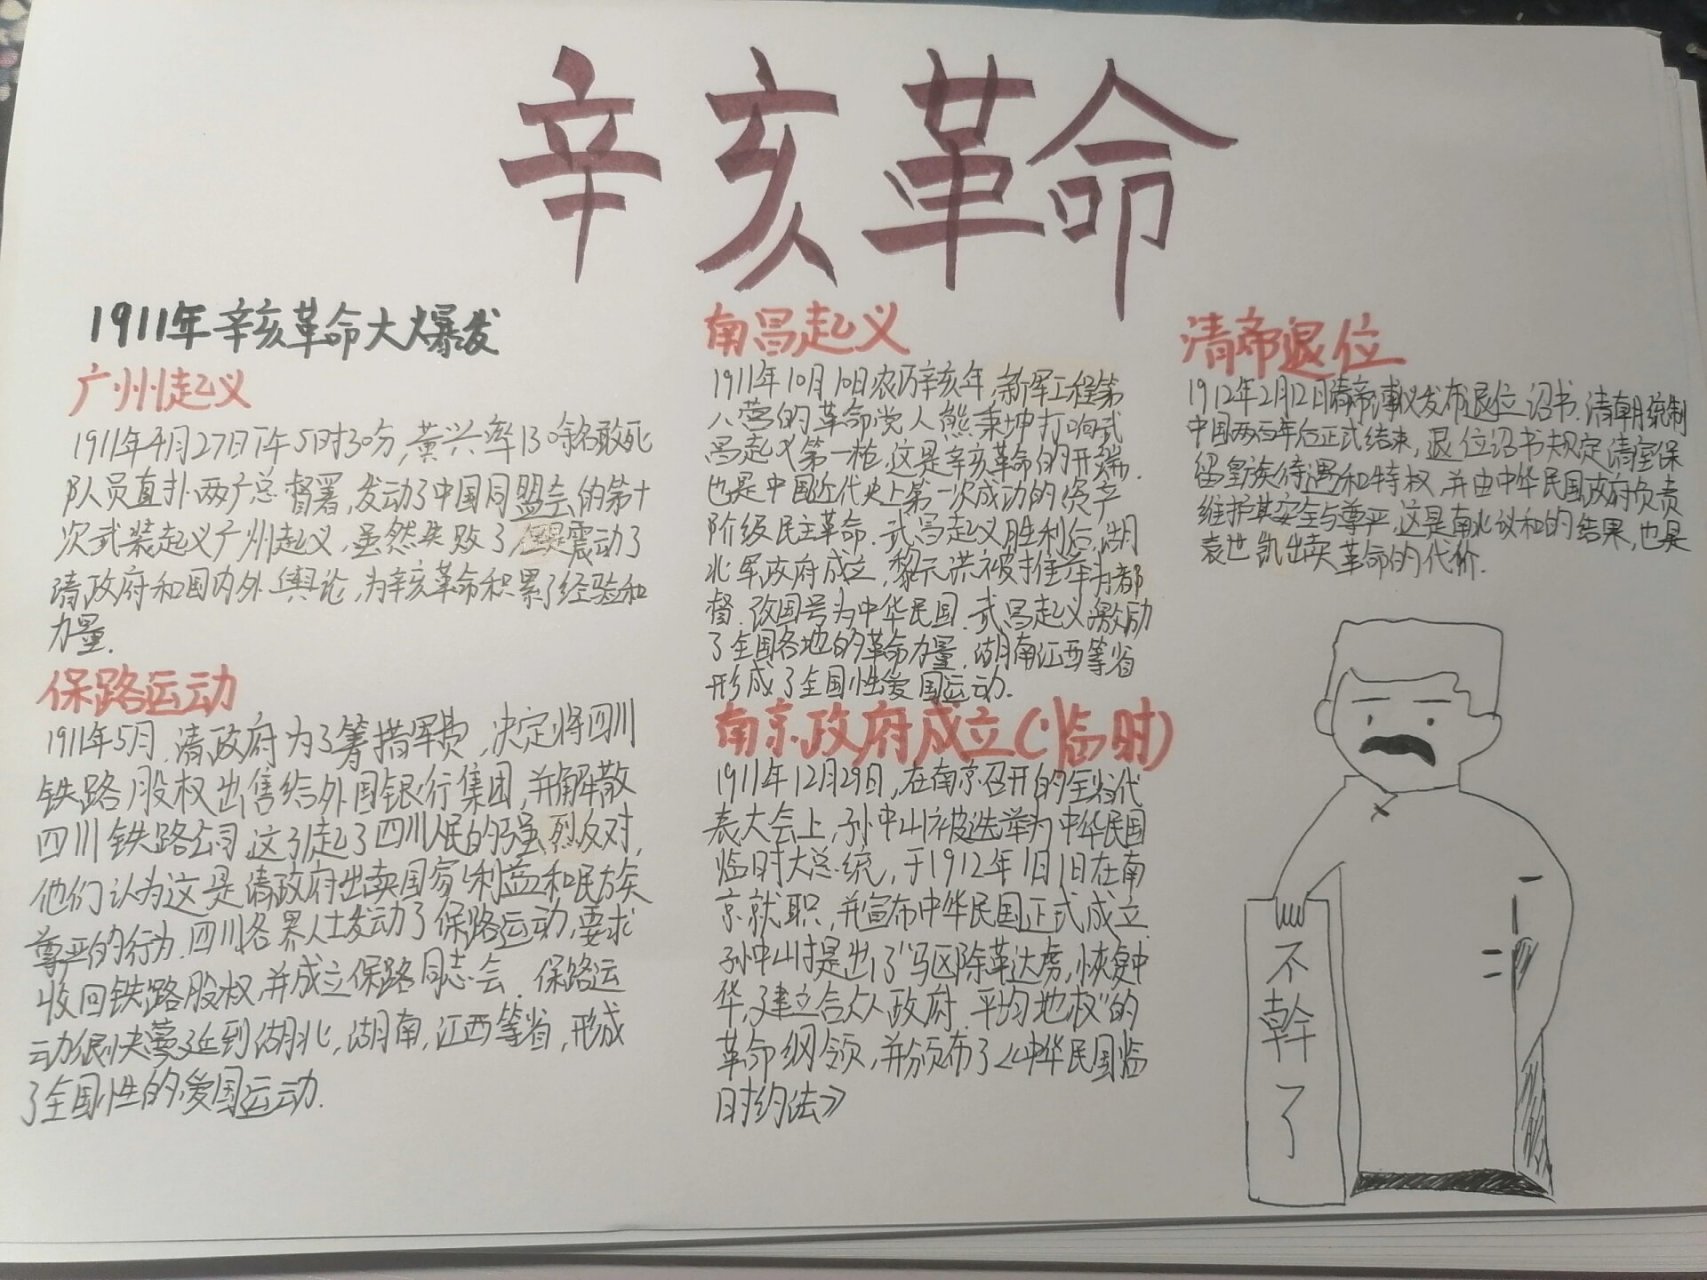 辛亥革命
1911年辛亥革命大爆发
广州起义
1911年4月27日下午5时30分,黄兴率130余名敢死
队员直扑两广总督署,发动了中国同盟会的第十
次武装起义广州起义,虽然失败了但是震动了
清政府和国内外舆论,为辛亥革命积累了经验和
力量.
保路运动
1911年5月.清政府为了筹措军费,决定将四川
铁路股权出售给外国银行集团,并解散
四川铁路公司这引起了四川人民的强烈反对,
他们认为这是清政府出卖国家利益和民族
尊严的行为.四川各界人士发动了保路运动,要求
收回铁路股权,并成立保路同志会.保路运
动很快蔓延到湖北,湖南,江西等省,形成
了全国性的爱国运动.
南昌起义
1911年10月10日农历辛亥年,新军工程第
八营的革命党人熊秉坤打响武
昌起义第一枪.这是辛亥革命的开端.
也是中国近代史上第一次成功的资产
阶级民主革命.武昌起义胜利后,湖
北军政府成立,黎元洪被推举为都
督.改国号为中华民国.武昌起义激励
了全国各地的革命力量.湖南江西等省
形成了全国性爱国运动.
南京政府成立(临时)
1911年12月29日,在南京召开的全省代
表大会上,孙中山被选举为中华民国
临时大总统,于1912年1月1日在南
京就职,并宣布中华民国正式成立.
孙中山提出了“驱除革达虏,恢复中
华,建立合众人政府.平均地权”的
革命纲领,并颁布了《中华民国临
时约法》
清帝退位
1912年2月12日清帝溥仪发布退位诏书.清朝统制
中国两百年后正式结束,退位诏书规定清室保
留皇族待遇和特权,并由中华民国政府负责
维护其安全与尊严.这是南北议和的结果,也是
袁世凯出卖革命的代价.
不
幹
了